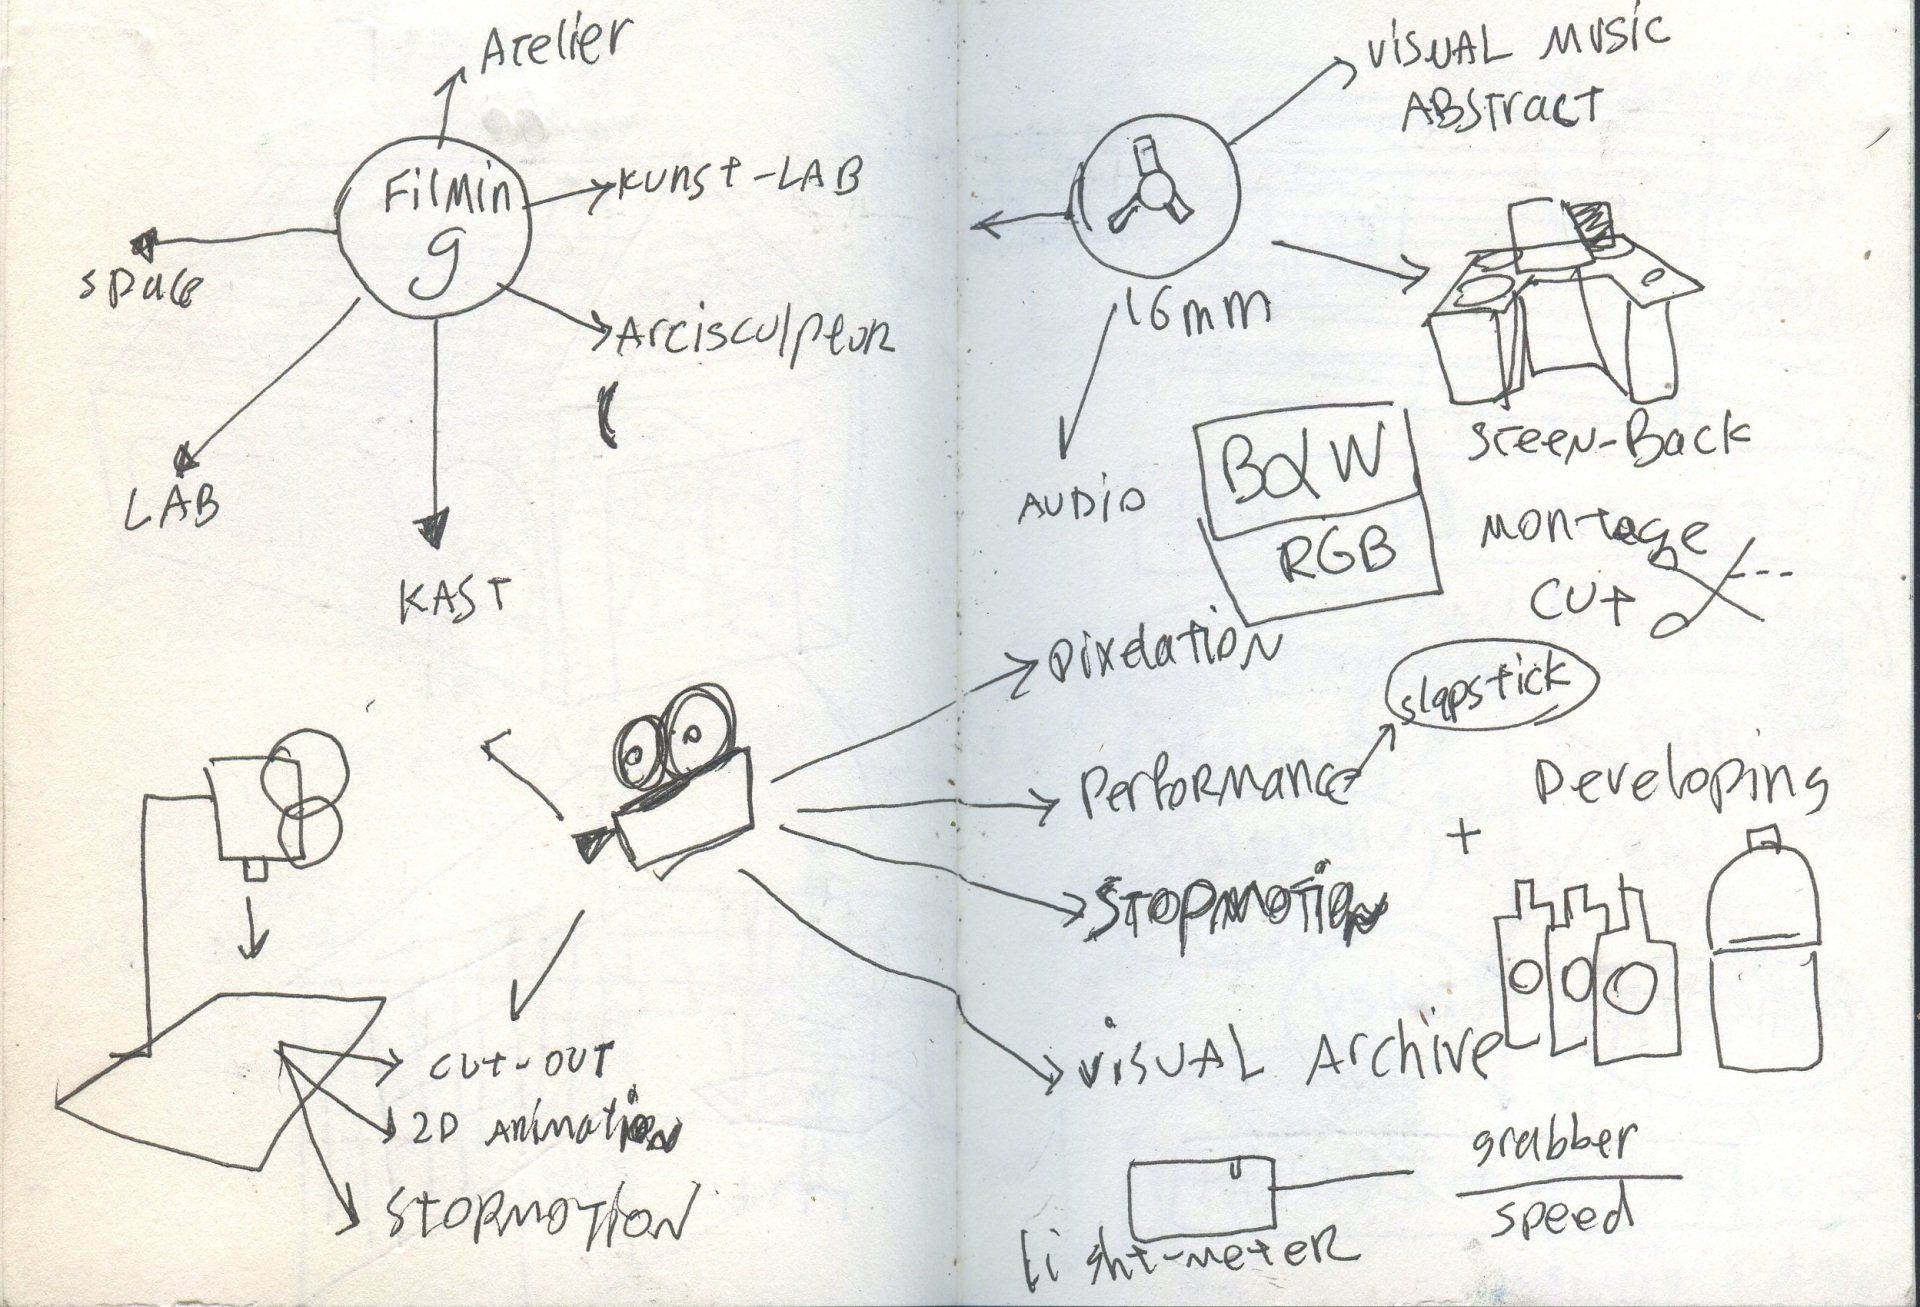 Atelier
Filmin
g
Kunst-LAB
space
Arcisculpteur
LAB
KAST
CUt-OUT
2D Animation
StopMOTION
VISUAL MUSIC
ABStract
16mm
AUDIO
B&W
RGB
Steen-Back
Montage
CUt
pixelation
slapstick
Performance
Developing
+
STOPMOTION
VISUAL Archive
grabber
speed
light-meter